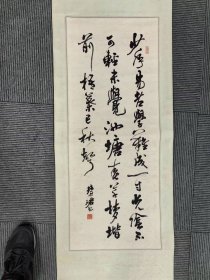 少年易老学难成一寸光陰不
可輕未覺池塘春草夢堦
前梧葉已秋聲